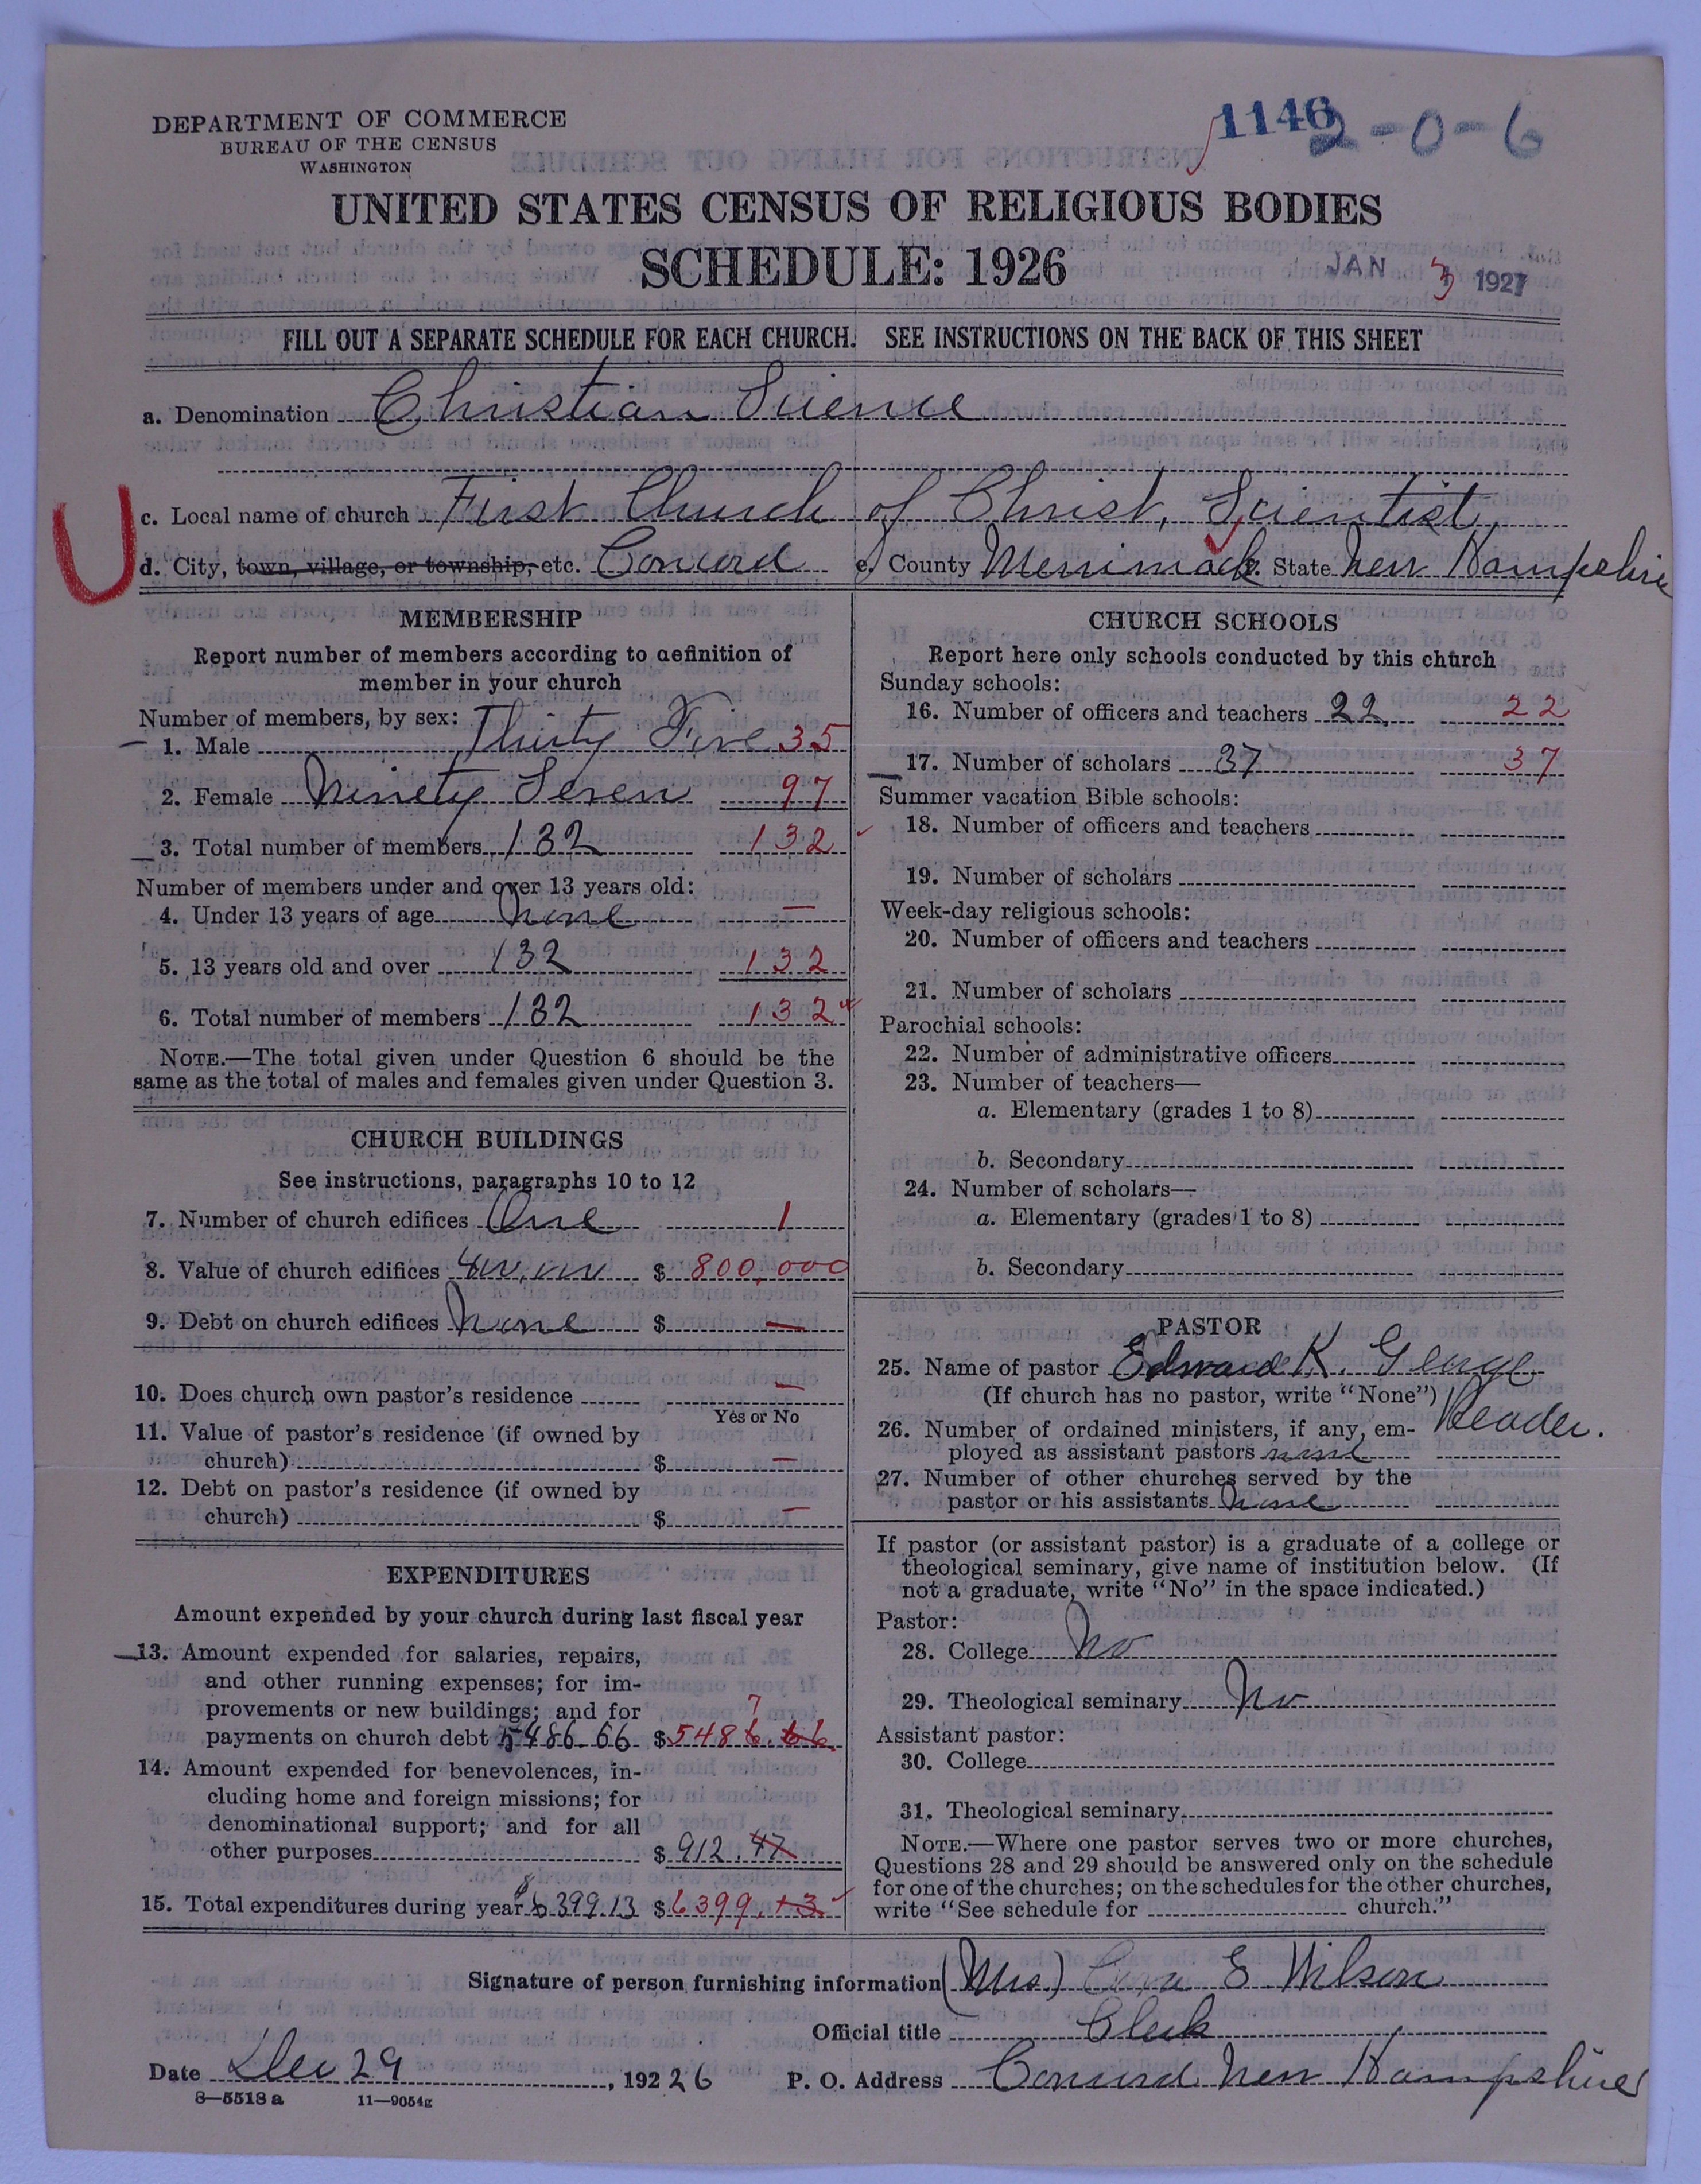 1146 2-0-6
DEPARTMENT OF COMMERCE
BUREAU OF THE CENSUS
WASHINGTON
UNITED STATES CENSUS OF RELIGIOUS BODIES
SCHEDULE: 1926
JAN 3 1927
FILL OUT A SEPARATE SCHEDULE FOR EACH CHURCH. SEE INSTRUCTIONS ON THE BACK OF THIS SHEET
a. Denomination Christian Science
c. Local name of church First Church of Christ, Scientist
U
d. City, town, village, or township, etc. Concord e. County Merrimack State New Hampshire
MEMBERSHIP
Report number of members according to definition of
member in your church
Number of members, by sex:
1. Male Thirty Five 35
2. Female Ninety Seven 97
3. Total number of members 132 132
Number of members under and over 13 years old:
4. Under 13 years of age none —
5. 13 years old and over 132 132
6. Total number of members 132 132
NOTE.—The total given under Question 6 should be the
same as the total of males and females given under Question 3.
CHURCH BUILDINGS
See instructions, paragraphs 10 to 12
7. Number of church edifices One 1
8. Value of church edifices $ 800,000
9. Debt on church edifices None $ —
10. Does church own pastor's residence —
Yes or No
11. Value of pastor's residence (if owned by
church) $ —
12. Debt on pastor's residence (if owned by
church) $ —
EXPENDITURES
Amount expended by your church during last fiscal year
13. Amount expended for salaries, repairs,
and other running expenses; for im-
provements or new buildings; and for
7
payments on church debt 5486.66 $ 5486.66
14. Amount expended for benevolences, in-
cluding home and foreign missions; for
denominational support; and for all
other purposes $ 912.47
15. Total expenditures during year $6399.13 $ 6399.13
CHURCH SCHOOLS
Report here only schools conducted by this church
Sunday schools:
16. Number of officers and teachers 22 22
17. Number of scholars 37 37
Summer vacation Bible schools:
18. Number of officers and teachers
19. Number of scholars
Week-day religious schools:
20. Number of officers and teachers
21. Number of scholars
Parochial schools:
22. Number of administrative officers
23. Number of teachers—
a. Elementary (grades 1 to 8)
b. Secondary
24. Number of scholars—
a. Elementary (grades 1 to 8)
b. Secondary
PASTOR
25. Name of pastor Edward K. George
(If church has no pastor, write "None") Reader.
26. Number of ordained ministers, if any, em-
ployed as assistant pastors none
27. Number of other churches served by the
pastor or his assistants None
If pastor (or assistant pastor) is a graduate of a college or
theological seminary, give name of institution below. (If
not a graduate, write "No" in the space indicated.)
Pastor:
28. College No
29. Theological seminary No
Assistant pastor:
30. College
31. Theological seminary
NOTE.—Where one pastor serves two or more churches,
Questions 28 and 29 should be answered only on the schedule
for one of the churches; on the schedules for the other churches,
write "See schedule for church."
Signature of person furnishing information (Mrs.) E Wilson
Official title Clerk
Date Dec 29, 192 26 P. O. Address Concord New Hampshire
8—5518 a 11—9054g